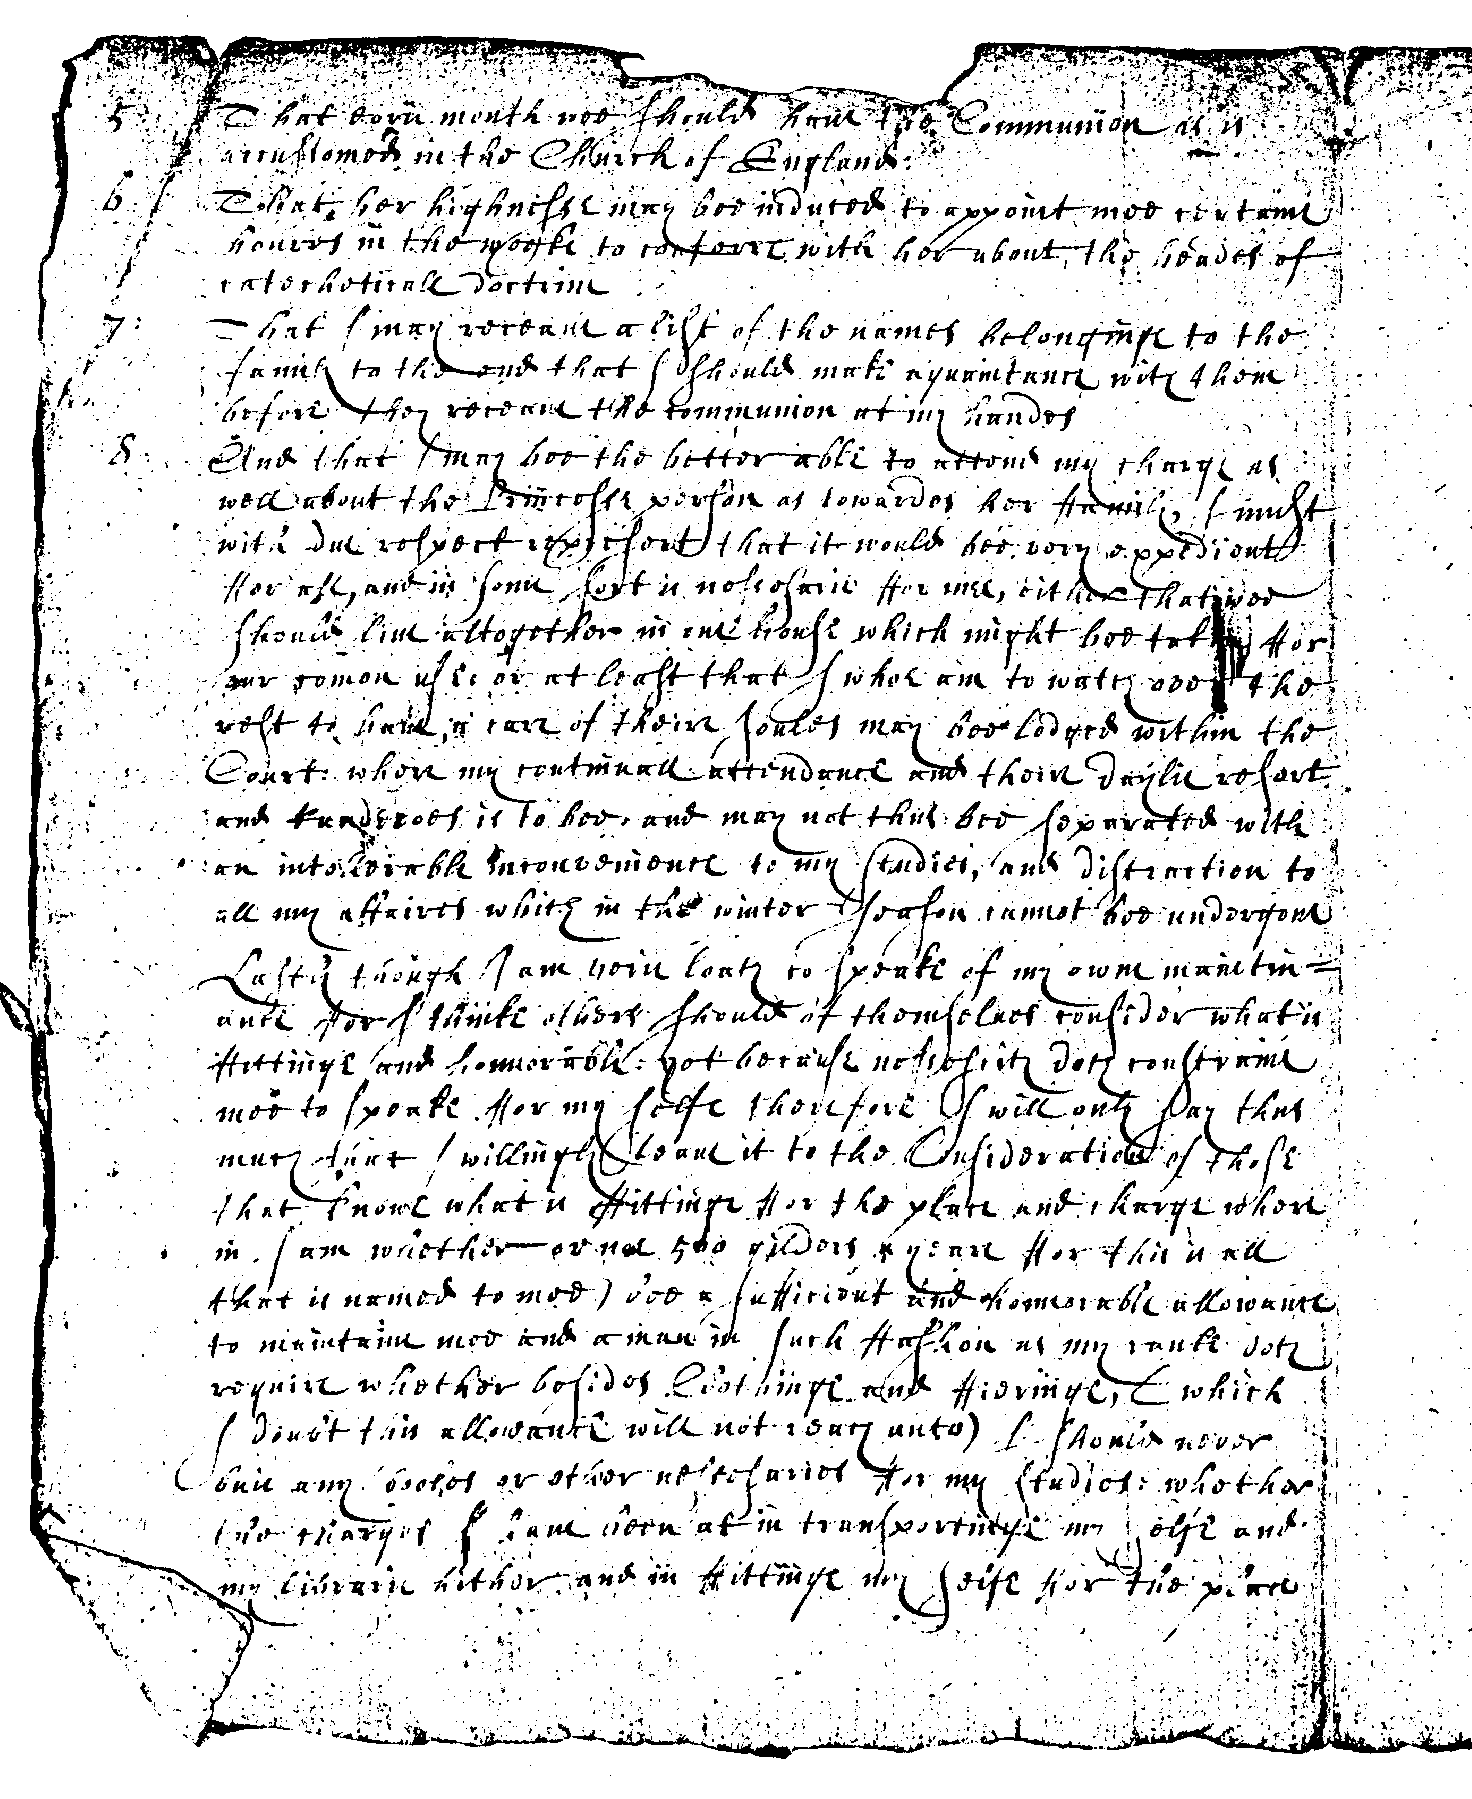 5 That every month wee should have the Communion as is
accustomed in the Church of England:
6 That her highnesse may bee induced to appoint mee certaine
houres in the weeke to conferre with her about the heades of
catecheticall doctrine
7: That I may receaue a list of the names belonginge to the
family to the end that I should make aquaintance with them
before they receaue the communion at my handes
8 And that I may bee the better able to attend my charge as
well about the Princesse person as towardes her ffamily, I must
with due respect represent that it would bee very expedient
ffor all, and in some sort is nessesarie ffor mee, either that wee
should liue altogether in one house which might bee taken ffor
our comon use: or at least that I whoe am to watch over the
rest to haue a care of theire soules may bee lodged within the
Court: where my continuall attendance and theire daylie resort
and is to bee, and may not thus bee separated with
an intolerable inconvenience to my studies, and distraction to
all my affaires which in the winter season cannot bee undergone
Lastly though I am verie loath to speake of my owne maintin=
ance ffor I thinke others should of themselves consider what is
ffittinge and honnorable: yet because nessessity doth constraine
mee to speake ffor my selfe therefore I will only say thus
much that I willingly leaue it to the Consideration of those
that knowe what is ffittinge ffor the place and charge where
in I am whether or noe 500 gilders a yeare ffor this is all
that is named to mee) bee a sufficient and honnorable allowance
to maintaine mee and a man in such ffashion as my ranke doth
require whether besides Clothinge and ffieringe, ( which
I doubt this allowance will not reach unto) I should never
buie any bookes or other nessesaries ffor my studies: whether
the charges I haue been at in transportinge my selfe and
my librarie hither, and in ffittinge my selfe ffor the place